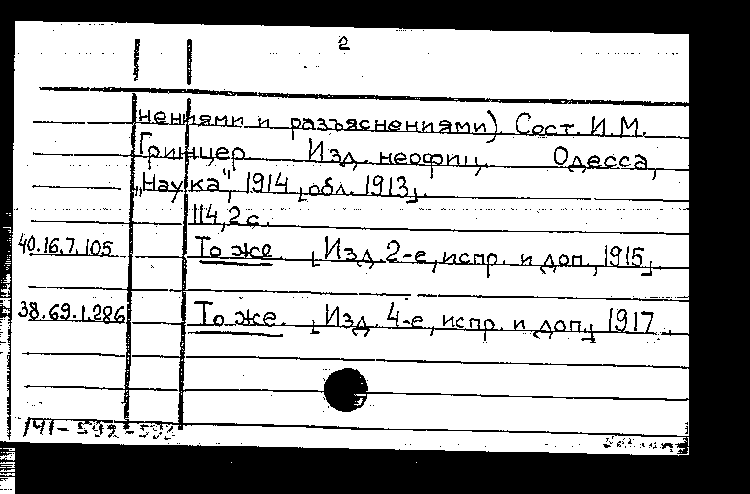 2
нениями и разъяснениями). Сост. И.М.
Гринцер. Изд. неофиц. Одесса,
„Наука", 1914 [обл. 1913].
114,2 с.
40.16.7.105 То же. [Изд. 2-е, испр. и доп., 1915].
38.69.1.286 То же. [Изд. 4-е, испр. и доп.] 1917.
141-592-593